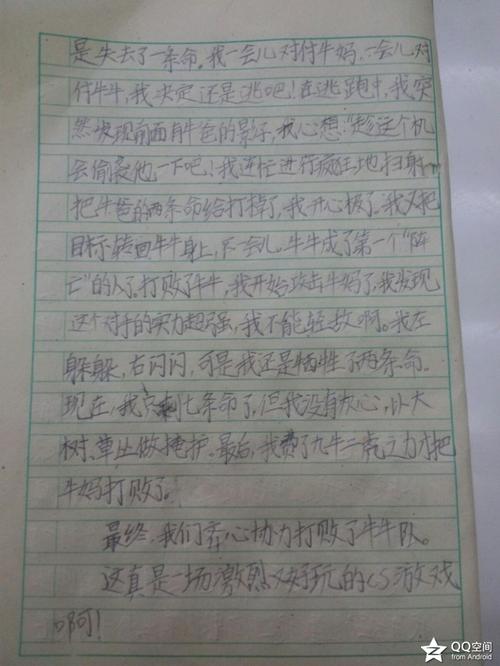 是失去了一条命。我一会儿对付牛妈,一会儿对
付牛牛,我决定还是逃吧!在逃跑中,我突
然发现前面有牛爸的影子,我心想:"趁这个机
会偷袭他一下吧!我连忙进行疯狂地扫射
把牛爸的两条命给打掉了,我开心极了。我又把
目标转回牛牛身上,不一会儿,牛牛成了第一个"阵
亡"的人了。打败了牛牛,我开始攻击牛妈了,我发现
这个对手的实力超强,我不能轻敌啊。我左
躲躲,右闪闪,可是我还是牺牲了两条命。
现在,我只剩七条命了,但我没有灰心,以大
树、草丛做掩护。最后,我费了九牛二虎之力才把
牛妈打败了。
最终,我们齐心协力打败了牛牛队。
这真是一场激烈又好玩的CS游戏
啊!
QQ空间
from Android